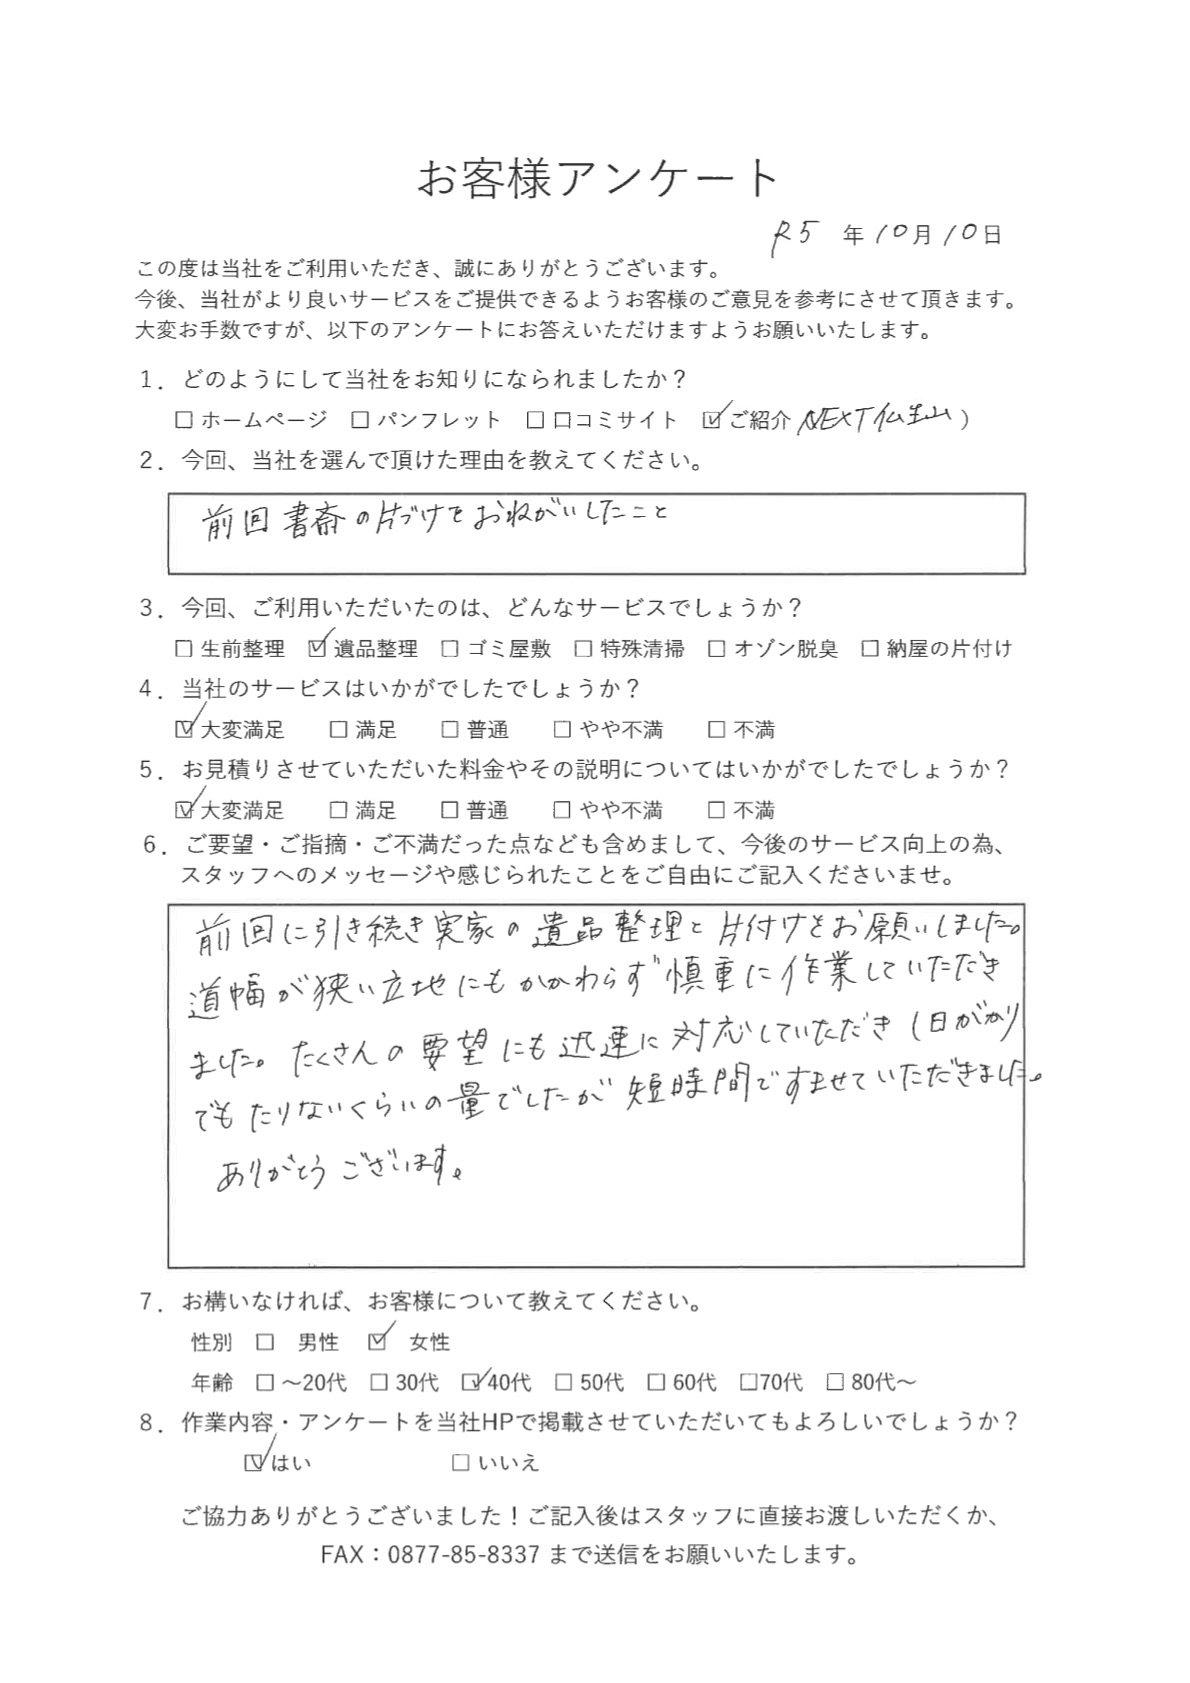 お客様アンケート
R5 年 10月 10日
この度は当社をご利用いただき、誠にありがとうございます。
今後、当社がより良いサービスをご提供できるようお客様のご意見を参考にさせて頂きます。
大変お手数ですが、以下のアンケートにお答えいただけますようお願いいたします。
1．どのようにして当社をお知りになられましたか？
□ ホームページ □ パンフレット □ 口コミサイト ☑ ご紹介 NEXT仏生山 ）
2．今回、当社を選んで頂けた理由を教えてください。
前回書斎の片づけをおねがいしたこと
3．今回、ご利用いただいたのは、どんなサービスでしょうか？
□ 生前整理 ☑ 遺品整理 □ ゴミ屋敷 □ 特殊清掃 □ オゾン脱臭 □ 納屋の片付け
4．当社のサービスはいかがでしたでしょうか？
☑ 大変満足 □ 満足 □ 普通 □ やや不満 □ 不満
5．お見積りさせていただいた料金やその説明についてはいかがでしたでしょうか？
☑ 大変満足 □ 満足 □ 普通 □ やや不満 □ 不満
6．ご要望・ご指摘・ご不満だった点なども含めまして、今後のサービス向上の為、
スタッフへのメッセージや感じられたことをご自由にご記入くださいませ。
前回に引き続き実家の遺品整理と片付けをお願いしました。
道幅が狭い立地にもかかわらず慎重に作業していただき
ました。たくさんの要望にも迅速に対応していただき 1日がかり
でもたりないくらいの量でしたが短時間ですませていただきました。
ありがとうございます。
7．お構いなければ、お客様について教えてください。
性別 □ 男性 ☑ 女性
年齢 □ ～20代 □ 30代 ☑ 40代 □ 50代 □ 60代 □70代 □ 80代～
8．作業内容・アンケートを当社HPで掲載させていただいてもよろしいでしょうか？
☑ はい □ いいえ
ご協力ありがとうございました！ご記入後はスタッフに直接お渡しいただくか、
FAX：0877-85-8337 まで送信をお願いいたします。